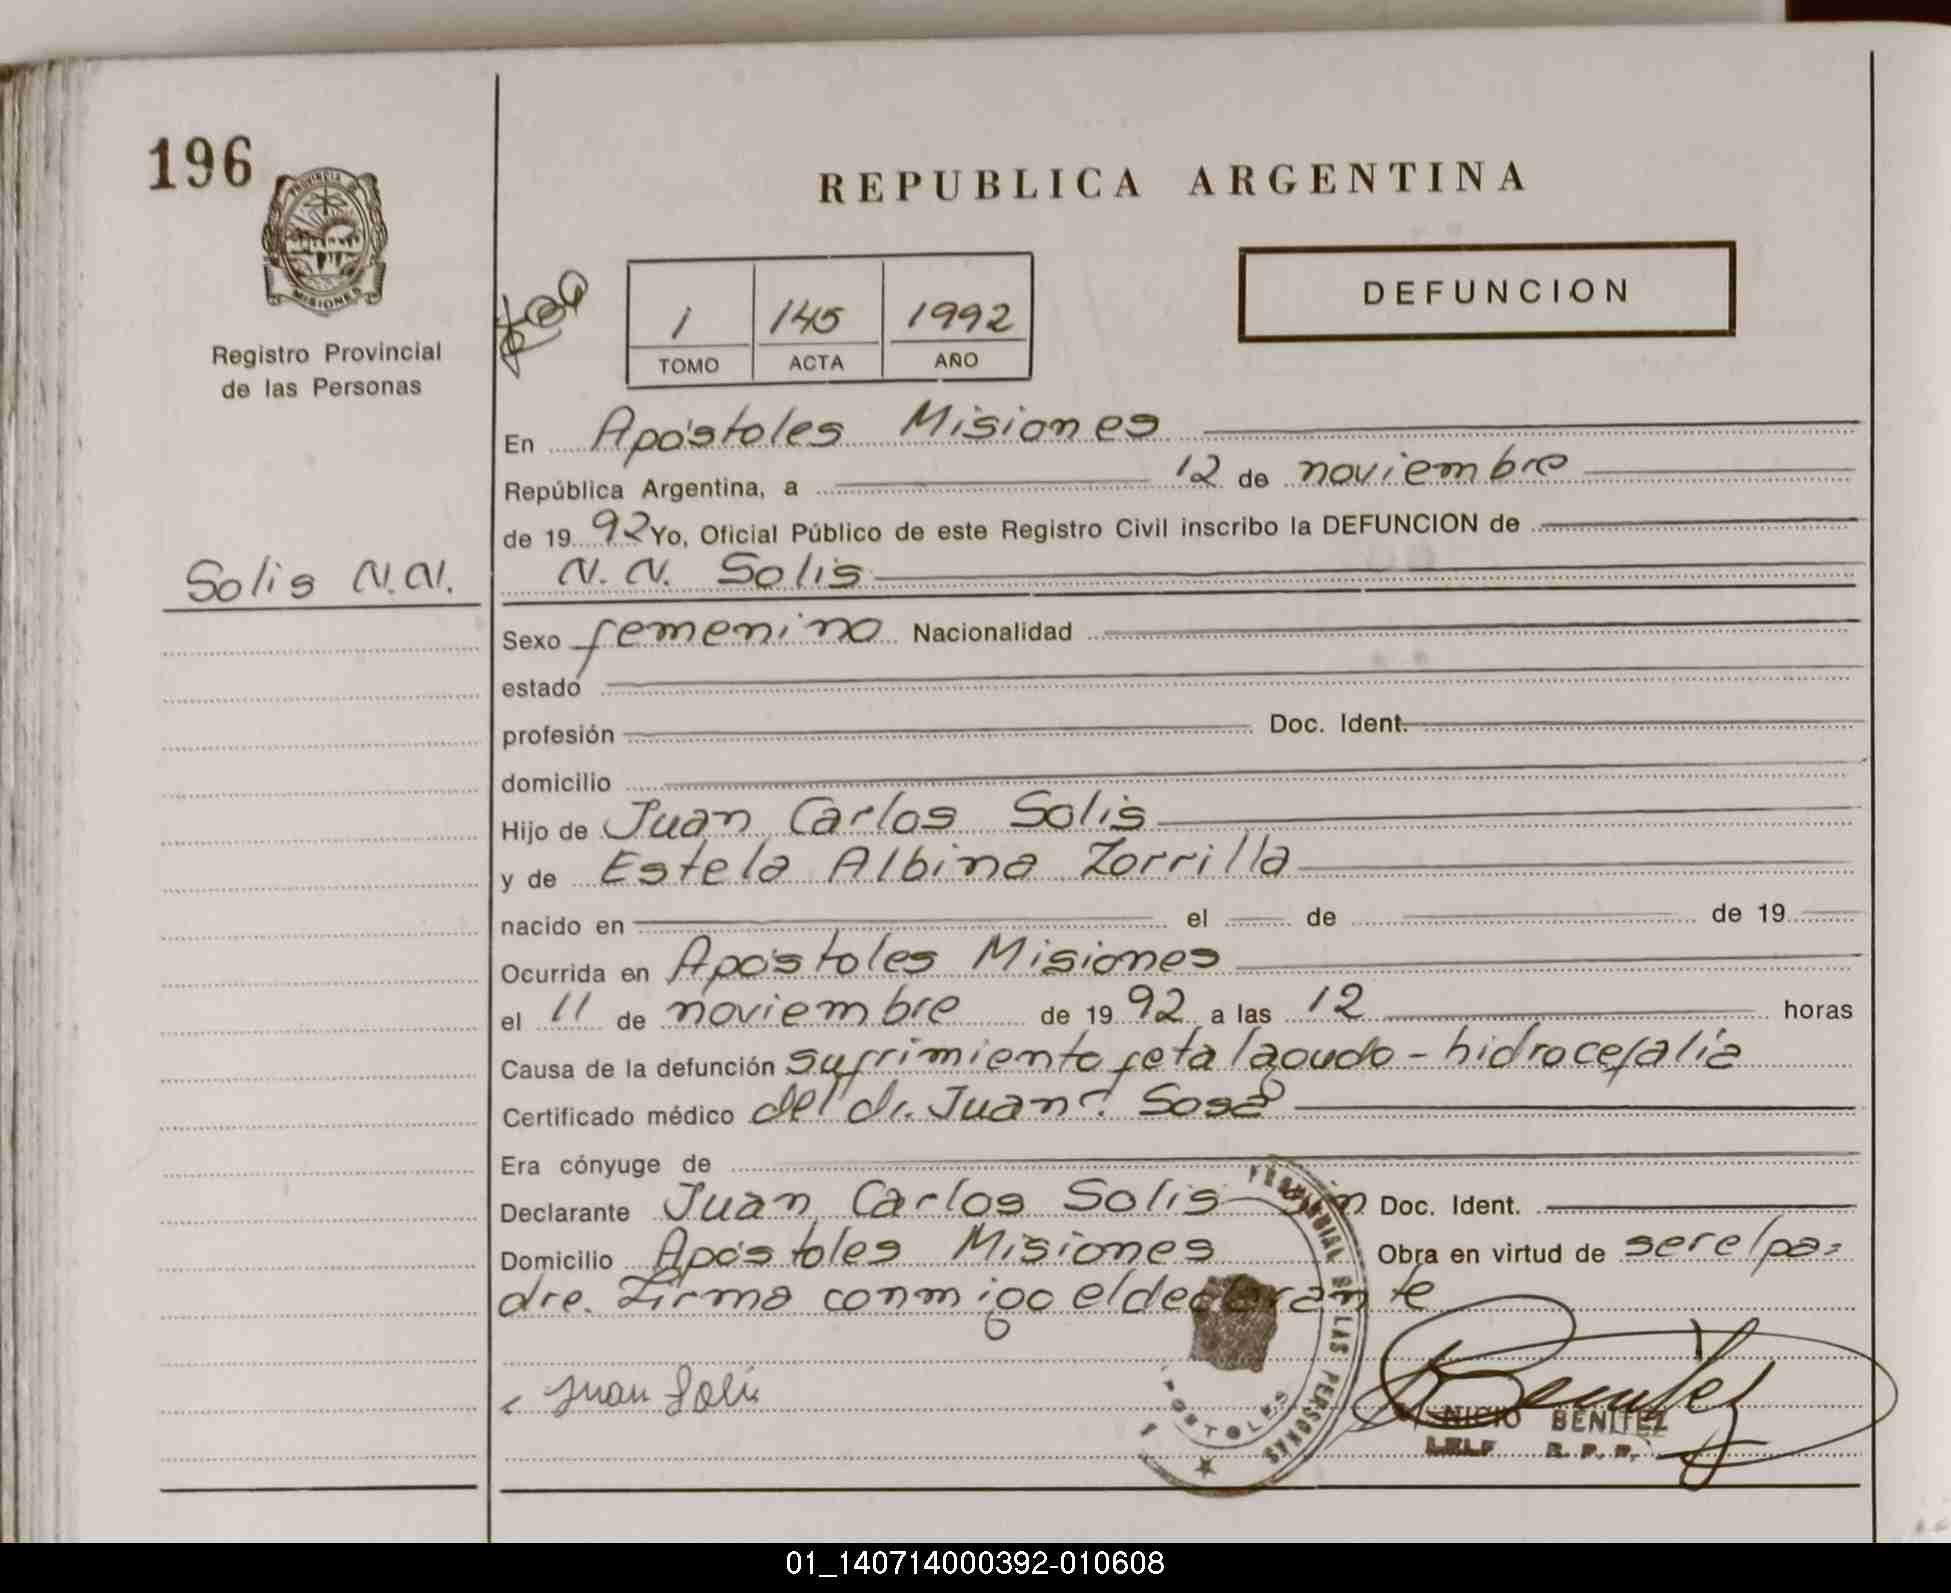 196
PROVINCIA DE
MISIONES
Registro Provincial
de las Personas
Solis N.N.
REPUBLICA ARGENTINA
1 145 1992
TOMO ACTA AÑO
DEFUNCION
En Apóstoles Misiones
República Argentina, a 12 de noviembre
de 19 92 Yo, Oficial Público de este Registro Civil inscribo la DEFUNCION de
N. N. Solis
Sexo femenino Nacionalidad
estado
profesión Doc. Ident.
domicilio
Hijo de Juan Carlos Solis
y de Estela Albina Zorrilla
nacido en el de de 19
Ocurrida en Apóstoles Misiones
el 11 de noviembre de 19 92 a las 12 horas
Causa de la defunción sufrimiento fetal agudo - hidrocefalia
Certificado médico del dr. Juan Sosa
Era cónyuge de
Declarante Juan Carlos Solis Doc. Ident.
Domicilio Apóstoles Misiones Obra en virtud de ser el pa=
dre. Firma conmigo el declarante
Juan Solis
LAS PERSONAS
Benitez
BENITEZ
R. P. P.
01_140714000392-010608